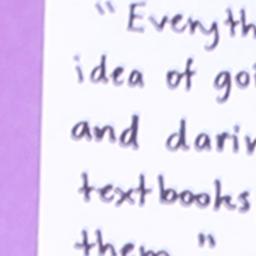 "Everyth
idea of goi
and darin
textbooks
them"